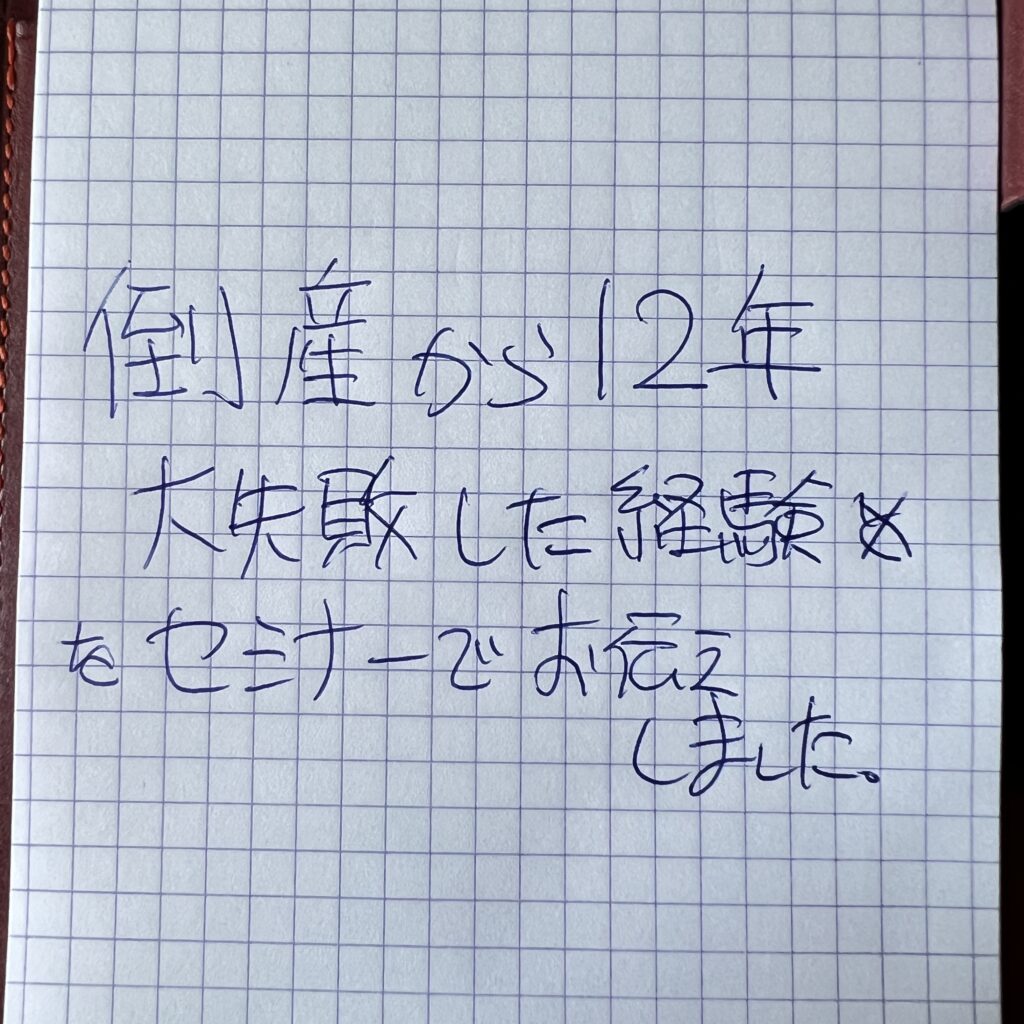 倒産から12年
大失敗した経験
をセミナーでお伝え
しました。